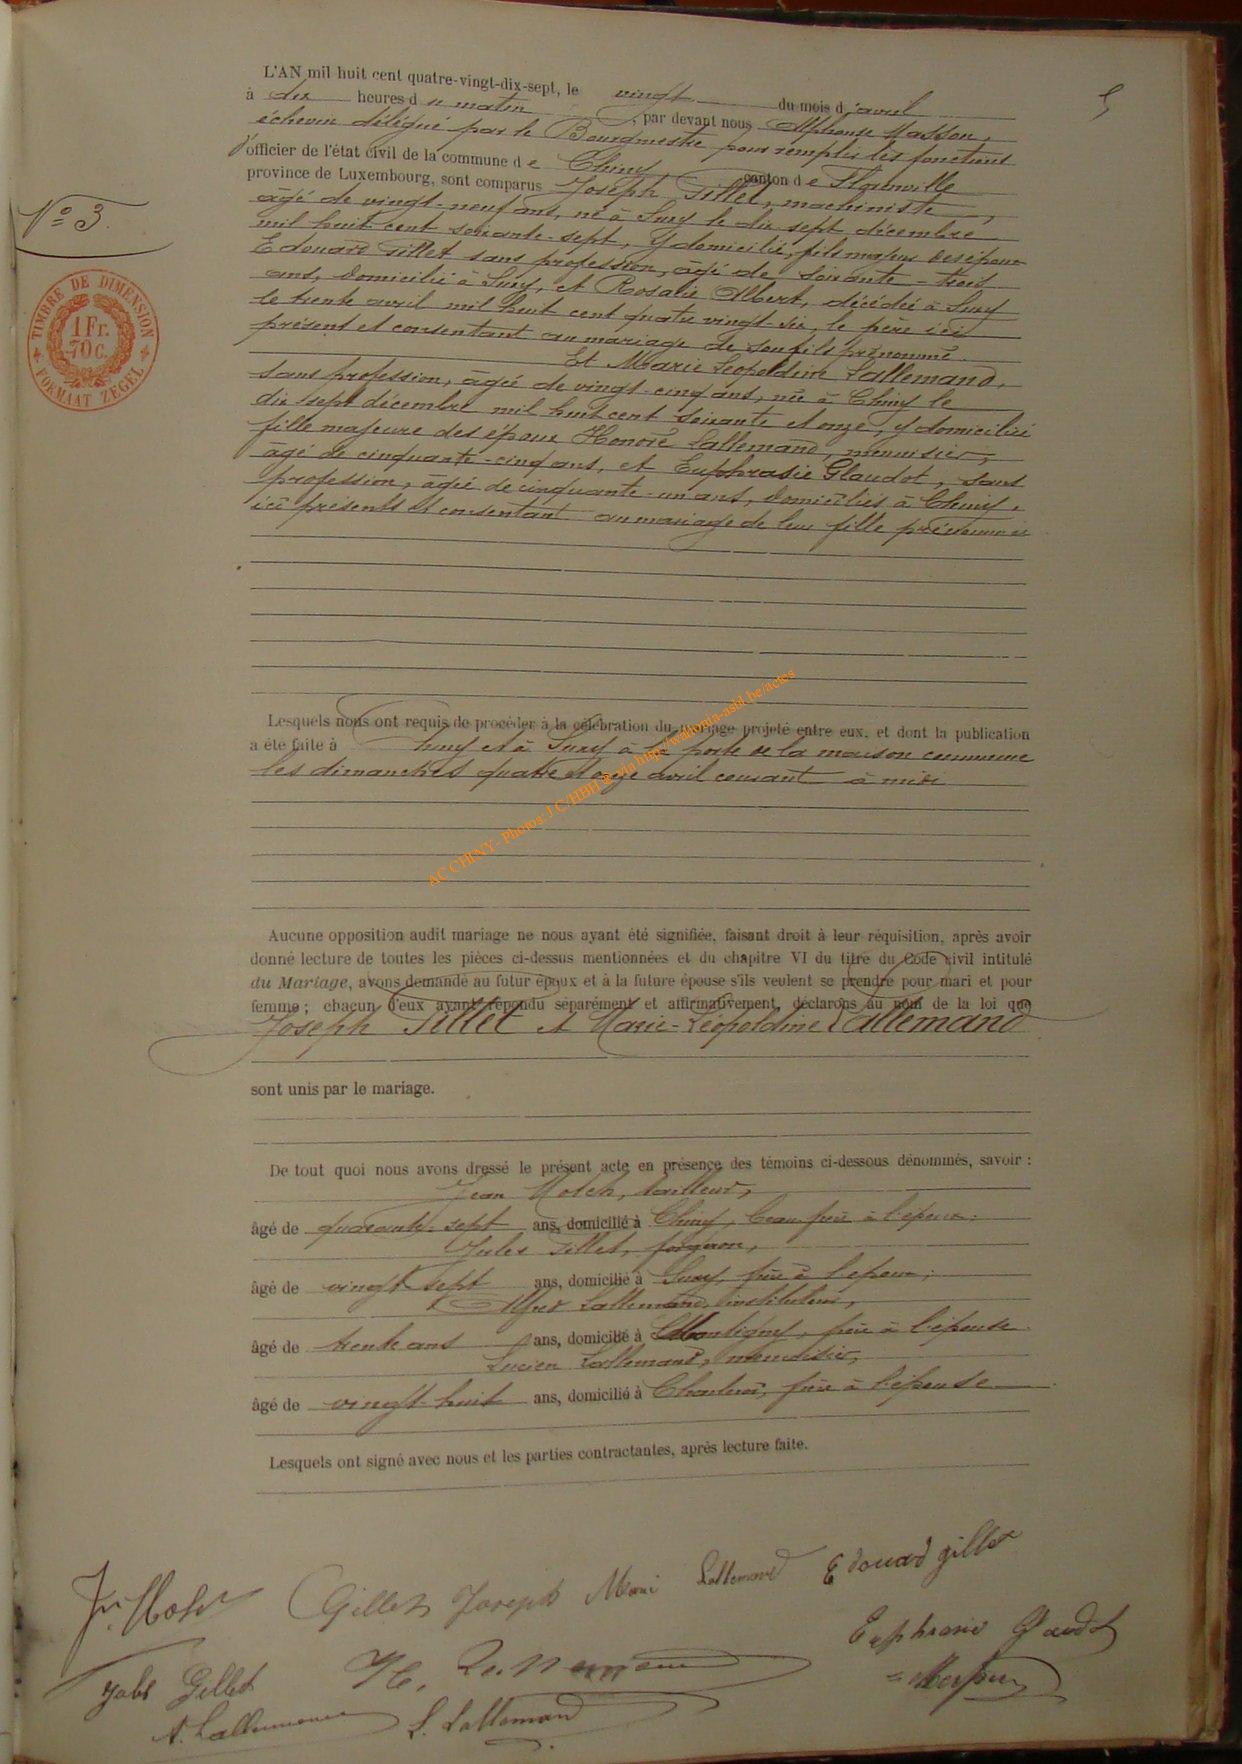 5
L'AN mil huit cent quatre-vingt-dix-sept, le vingt du mois d'avril
à dix heures du matin, par devant nous Alphonse Masson,
échevin délégué par le Bourgmestre pour remplir les fonctions
d'officier de l'état civil de la commune de Chiny canton de Florenville
province de Luxembourg, sont comparus Joseph Gillet, machiniste,
âgé de vingt-neuf ans, né à Suxy le dix sept décembre
mil huit cent soixante-sept, y domicilié, fils majeur des époux
Edouard Gillet sans profession, âgé de soixante-trois
ans, domicilié à Suxy, et Rosalie Albert, décédée à Suxy
le trente avril mil huit cent quatre vingt-six, le père ici
présent et consentant au mariage de son fils prénommé
Et Marie Léopoldine Lallemand,
sans profession, âgée de vingt-cinq ans, née à Chiny le
dix sept décembre mil huit cent soixante et onze, y domiciliée
fille majeure des époux Honoré Lallemand, menuisier,
âgé de cinquante-cinq ans, et Euphrasie Glaudot, sans
profession, âgée de cinquante-un ans, domiciliés à Chiny,
ici présents et consentant au mariage de leur fille prénommée
N° 3
TIMBRE DE DIMENSION
1 Fr.
70 c.
FORMAAT ZEGEL
Lesquels nous ont requis de procéder à la célébration du mariage projeté entre eux, et dont la publication
a été faite à Chiny et à Suxy à la porte de la maison commune
les dimanches quatre et onze avril courant à midi
AC CHINY - Photos: J.C/HBH & via http://wallonia-asbl.be/actes
Aucune opposition audit mariage ne nous ayant été signifiée, faisant droit à leur réquisition, après avoir
donné lecture de toutes les pièces ci-dessus mentionnées et du chapitre VI du titre du Code civil intitulé
du Mariage, avons demandé au futur époux et à la future épouse s'ils veulent se prendre pour mari et pour
femme ; chacun d'eux ayant répondu séparément et affirmativement, déclarons au nom de la loi que
Joseph Gillet et Marie-Léopoldine Lallemand
sont unis par le mariage.
De tout quoi nous avons dressé le présent acte en présence des témoins ci-dessous dénommés, savoir :
Jean tailleur,
âgé de quarante-sept ans, domicilié à Chiny, beau frère à l'époux;
Jules Gillet, forgeron,
âgé de vingt sept ans, domicilié à Suxy, frère à l'époux;
Alfred Lallemand, instituteur,
âgé de trente ans ans, domicilié à Montigny, frère à l'épouse
Lucien Lallemand, menuisier,
âgé de vingt-huit ans, domicilié à frère à l'épouse
Lesquels ont signé avec nous et les parties contractantes, après lecture faite.
Gillet Joseph Marie Lallemand Edouard gillet
Euphrasie Glaudot
Jules Gillet H. Lallemand
A. Lallemand L. Lallemand